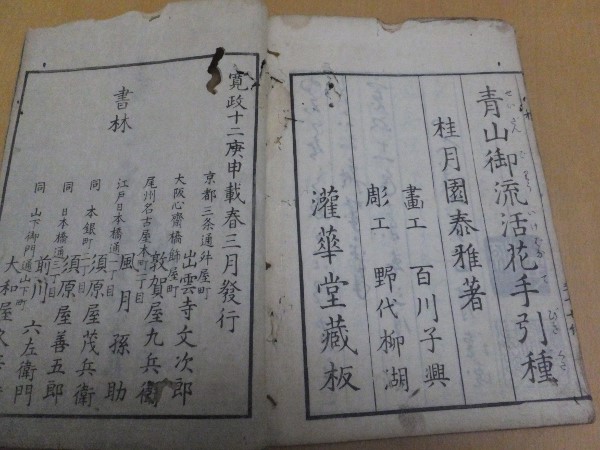 青山御流活花手引種
桂月園泰雅著
畫工 百川子興
彫工 野代柳湖
灌華堂藏板
寛政十二庚申載春三月發行
書林
京都三条通舛屋町
出雲寺文次郎
大阪心齋橋飾屋町
敦賀屋九兵衛
尾州名古屋本町一丁目
風月孫助
江戸日本橋通一丁目
須原屋茂兵衛
同 本銀町二丁目
須原屋善五郎
同 日本橋通三丁目
前川六左衛門
同 山下御門通山下町
大和屋